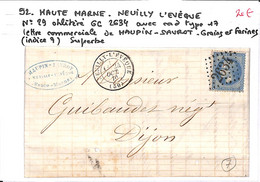 52. HAUTE MARNE. NEUILLY L'EVEQUE 20€
N° 29 oblitéré GC 2634 avec cad type 17
lettre commerciale de MAUPIN-SAUROT. Grains et Farines
(indice 9) Superbe
NEUILLY-L'EVEQUE
17
OCT
Messieurs
Guibaudet neg^t
Dijon
7